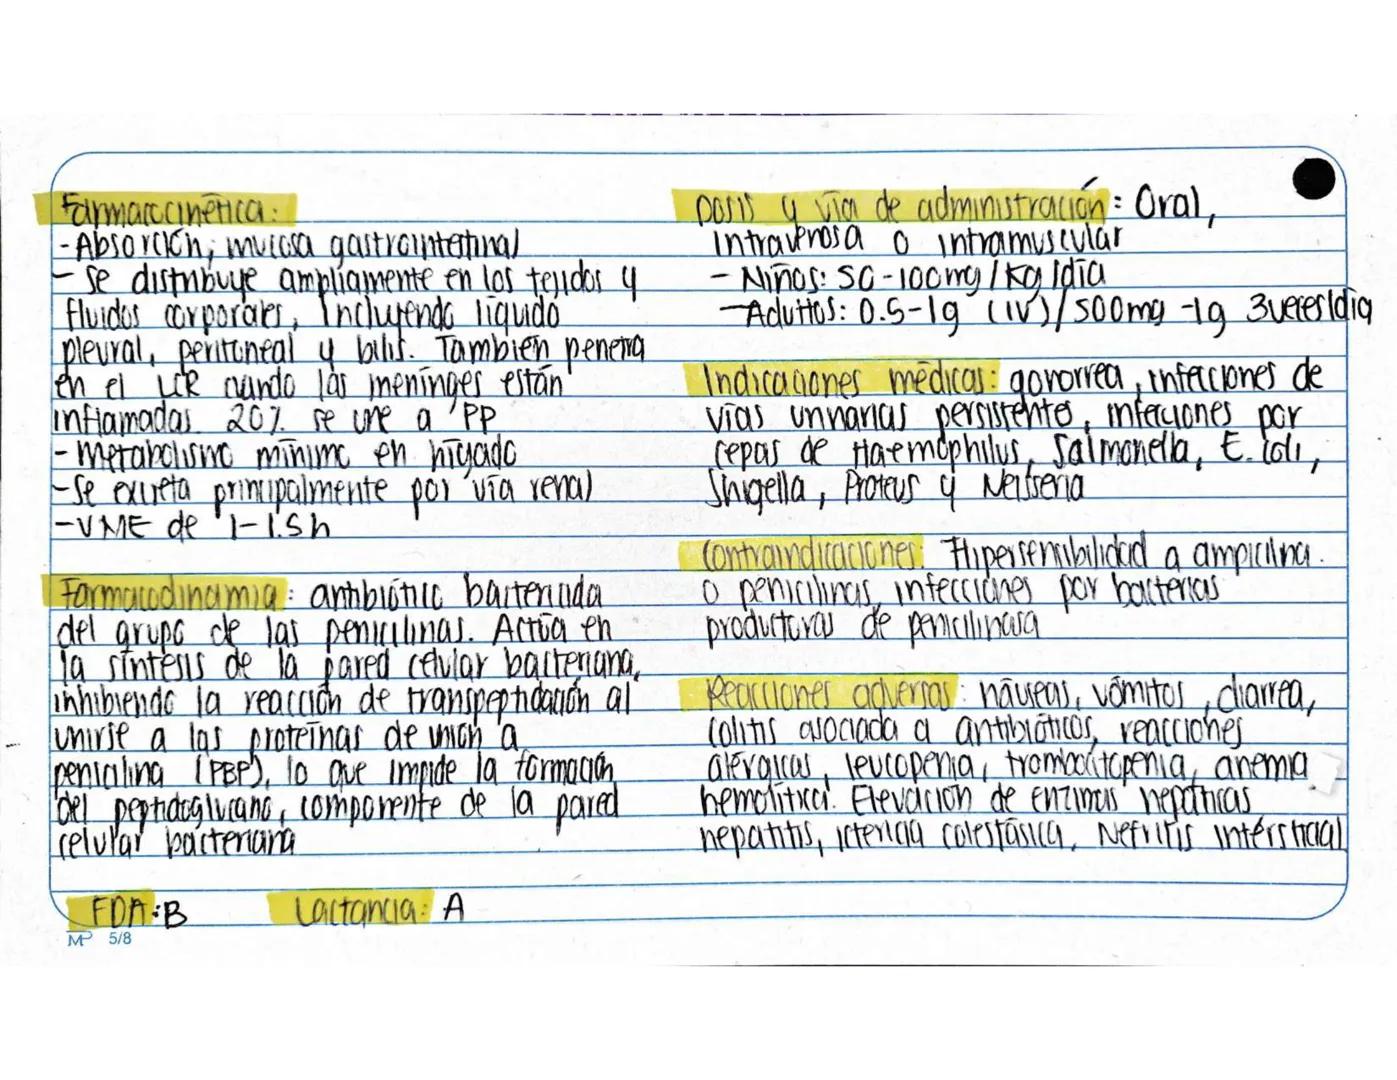 Farmacocinética:
- Absorción; mucosa gastrointestinal
- Se distribuye ampliamente en los tejidos y
fluidos corporales, incluyendo líquido
pleural, peritoneal y bilis. También penetra
en el LCR cuando las meninges están
inflamadas. 20% se une a PP
- Metabolismo mínimo en hígado
- Se excreta principalmente por vía renal
- VME de 1-1.5h
Farmacodinamia: antibiótico bactericida
del grupo de las penicilinas. Actúa en
la síntesis de la pared celular bacteriana,
inhibiendo la reacción de transpeptidación al
unirse a las proteínas de unión a
penicilina (PBP), lo que impide la formación
del peptidoglucano, componente de la pared
celular bacteriana
FDA: B Lactancia: A
MP 5/8
Dosis y vía de administración: Oral,
intravenosa o intramuscular
- Niños: 50-100mg/kg/día
- Adultos: 0.5-1g (IV)/500mg -1g 3veces/día
Indicaciones médicas: gonorrea, infecciones de
vías urinarias persistentes, infecciones por
cepas de Haemophilus, Salmonella, E. coli,
Shigella, Proteus y Neisseria
Contraindicaciones: Hipersensibilidad a ampicilina.
o penicilinas, infecciones por bacterias
productoras de penicilinasa
Reacciones adversas: náuseas, vómitos, diarrea,
colitis asociada a antibióticos, reacciones
alérgicas, leucopenia, trombocitopenia, anemia
hemolítica. Elevación de enzimas hepáticas
hepatitis, ictericia colestásica, Nefritis intersticial